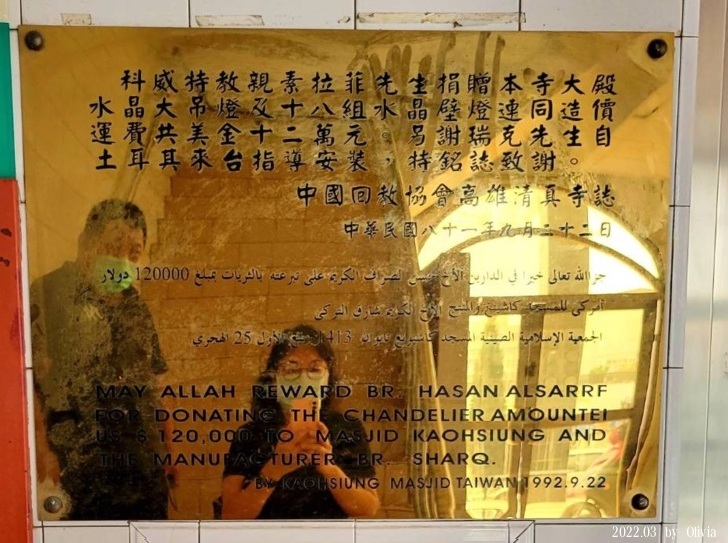 科威特教親素拉菲先生捐贈本寺大殿
水晶大吊燈及十八組水晶壁燈連同造價
運費共美金十二萬元。另謝瑞克先生自
土耳其來台指導安裝，特銘誌致謝。
中國回教協會高雄清真寺誌
中華民國八十一年九月二十二日
جزالله تعالى خيرا في الدارين الأخ حسن الصراف الكريم على تبرعته بالثريات بمبلغ 120000 دولار
أمركي للمسجد كاشيونغ والمنتج الأخ الكريم شارق التركي
الجمعية الإسلامية الصينية المسجد كاشيونغ تايوان. 1413 ربيع الأول 25 الهجري
MAY ALLAH REWARD BR. HASAN ALSARRF
FOR DONATING THE CHANDELIER AMOUNTEI
US $ 120,000 TO MASJID KAOHSIUNG AND
THE MANUFACTURER BR. SHARQ.
BY KAOHSIUNG MASJID TAIWAN 1992.9.22
2022.03 by Olivia